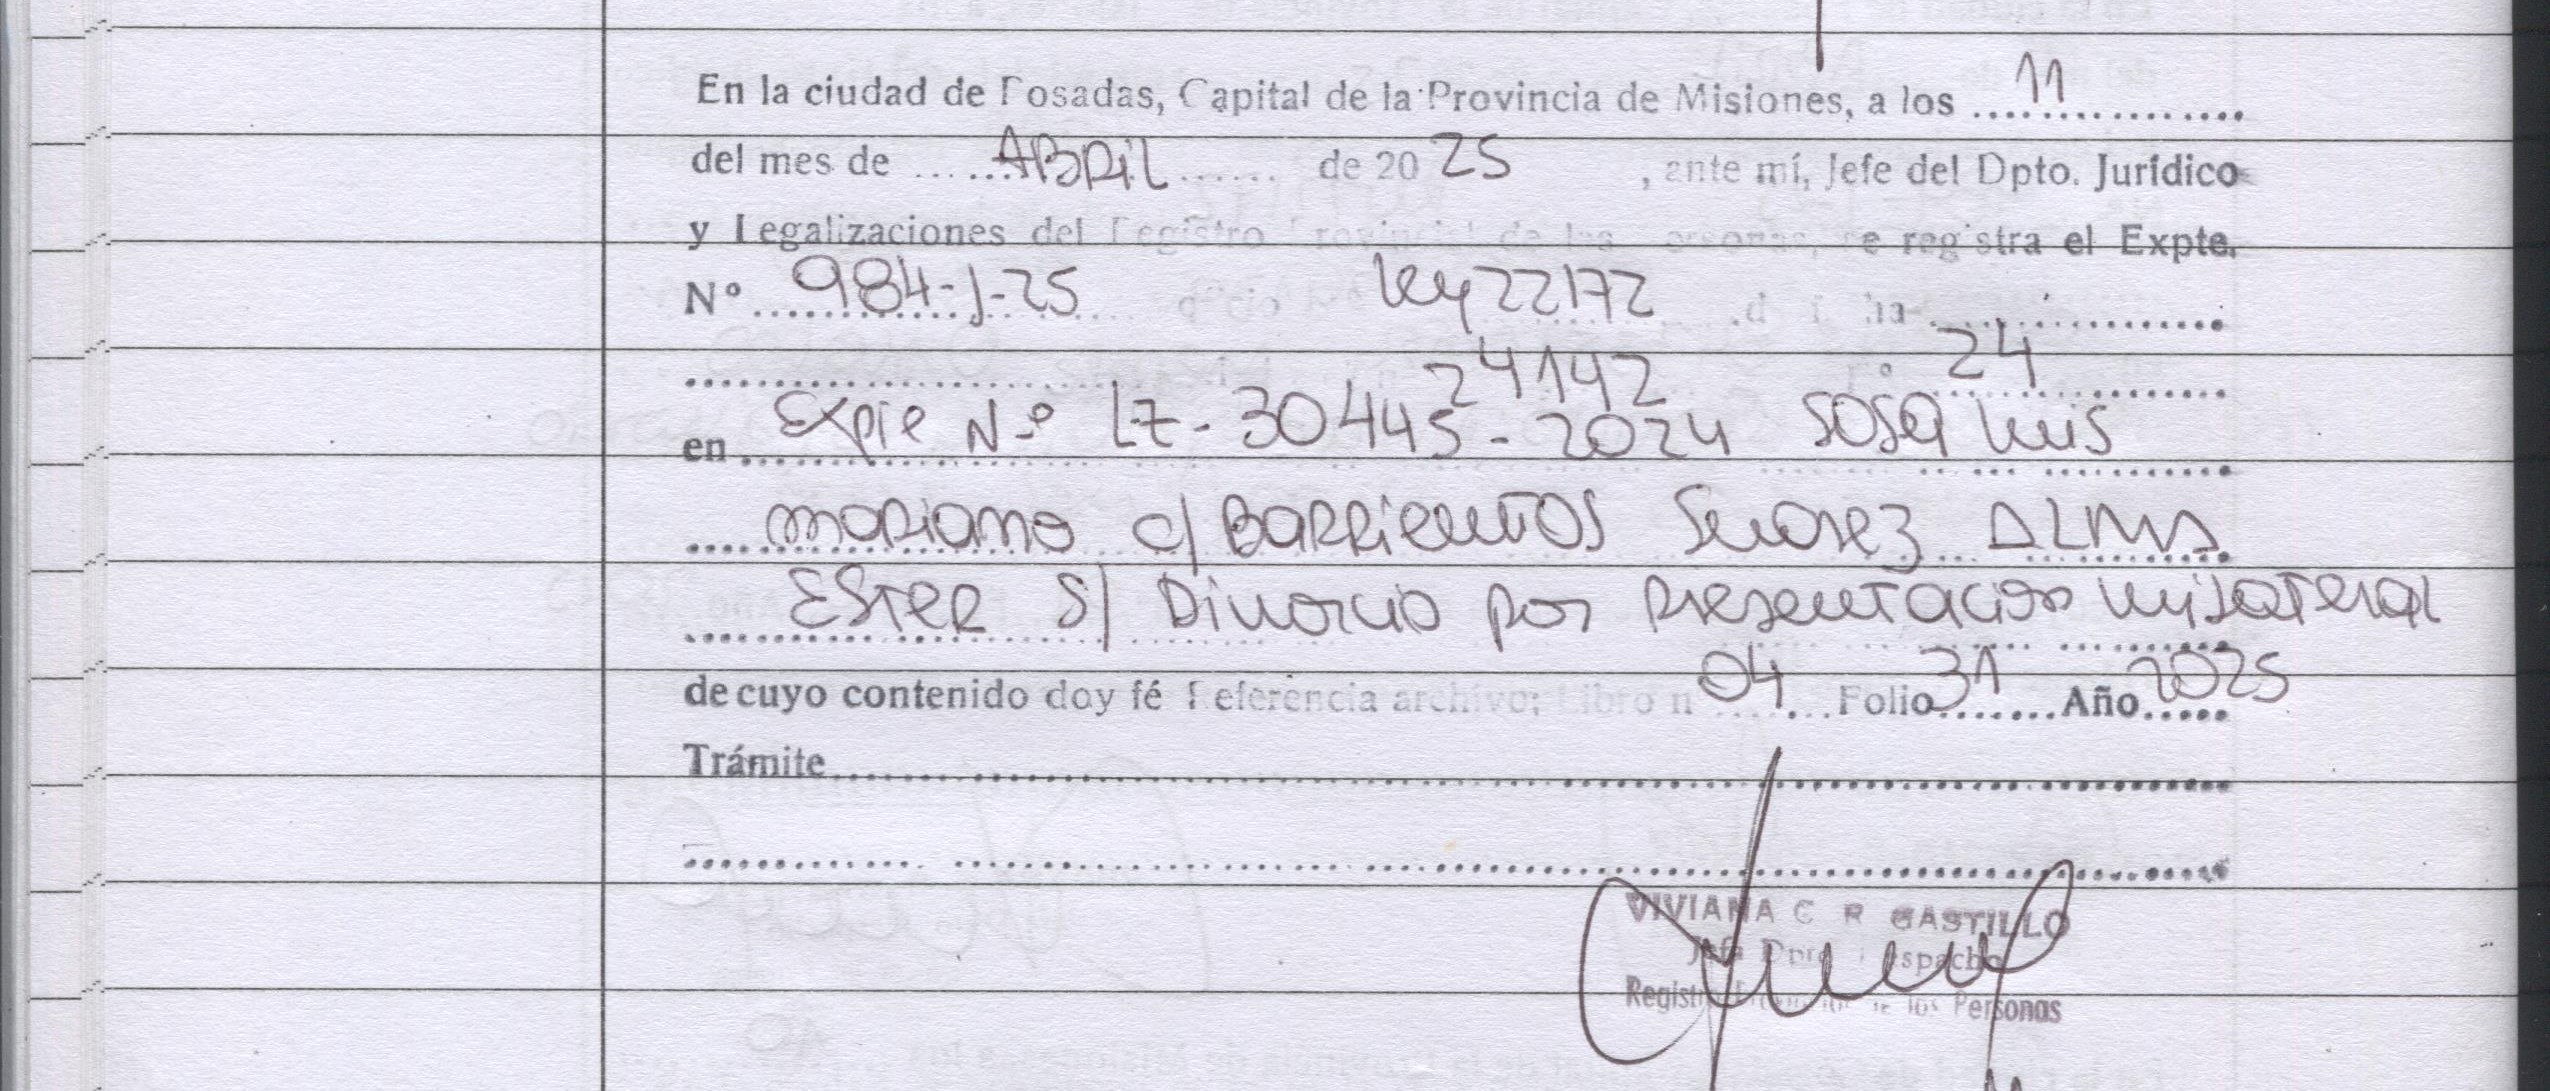 En la ciudad de Posadas, Capital de la Provincia de Misiones, a los 11
del mes de ABRil de 20 25, ante mí, Jefe del Dpto. Jurídico
y Legalizaciones del Registro Provincial de las Personas, se registra el Expte.
Nº 984-J-25 oficio ley 22172
24142 24
en Expte Nº LZ-30445-2024 SOSA luis
mariano c/ BARRientos Suarez ALMA
ESTER S/ Divorcio por presentacion unilateral
de cuyo contenido doy fé Referencia archivo: Libro n 04 Folio 31 Año 2025
Trámite
VIVIANA C R CASTILLO
Jefa Dpto Despacho
Registro Provincial de las Personas